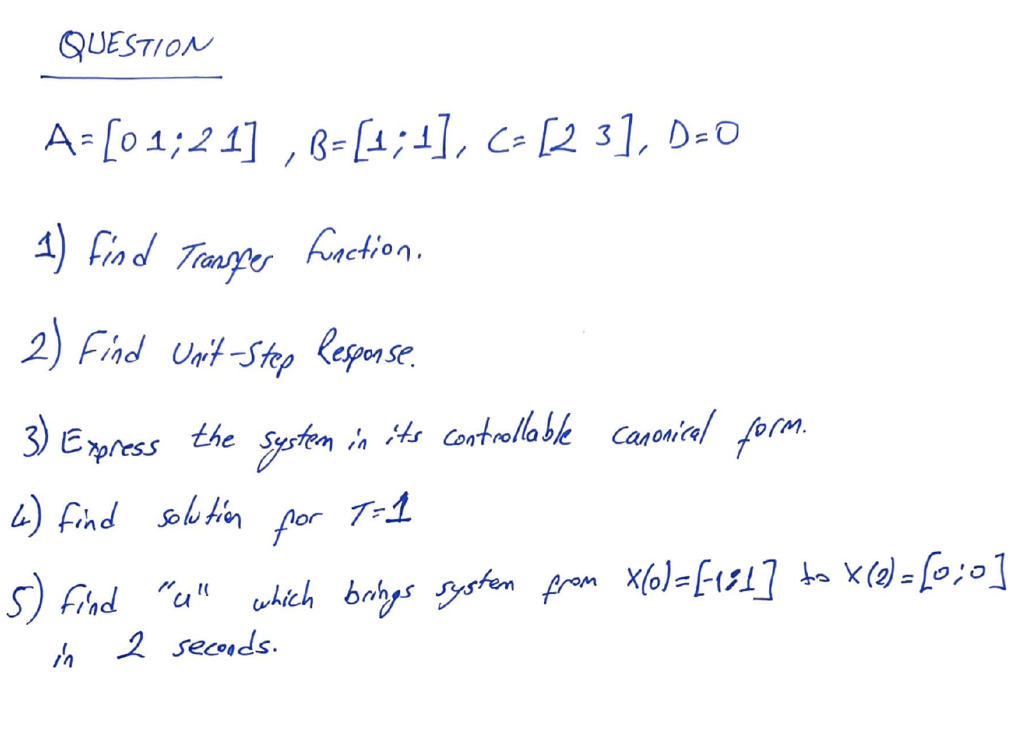 QUESTION
A=[0 1;2 1] , B=[1;1], C=[2 3], D=0
1) Find Transfer function.
2) Find Unit-Step Response.
3) Express the system in its controllable canonical form.
4) Find solution for T=1
5) Find "u" which brings system from X(0)=[-1;1] to X(2)=[0;0]
in 2 seconds.